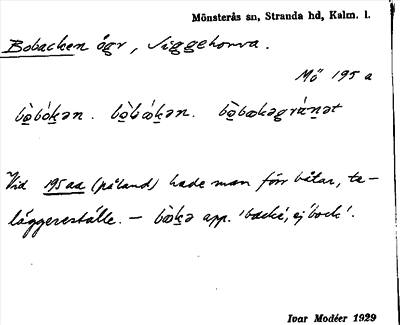 Mönsterås sn, Stranda hd, Kalm. l.
Bobacken ägr, Siggehorva.
Mö 195 a
Vid 195 aa (påland) hade man förr båtar, te-
läggereställe. – app. 'backe', ej 'bock'.
Ivar Modéer 1929